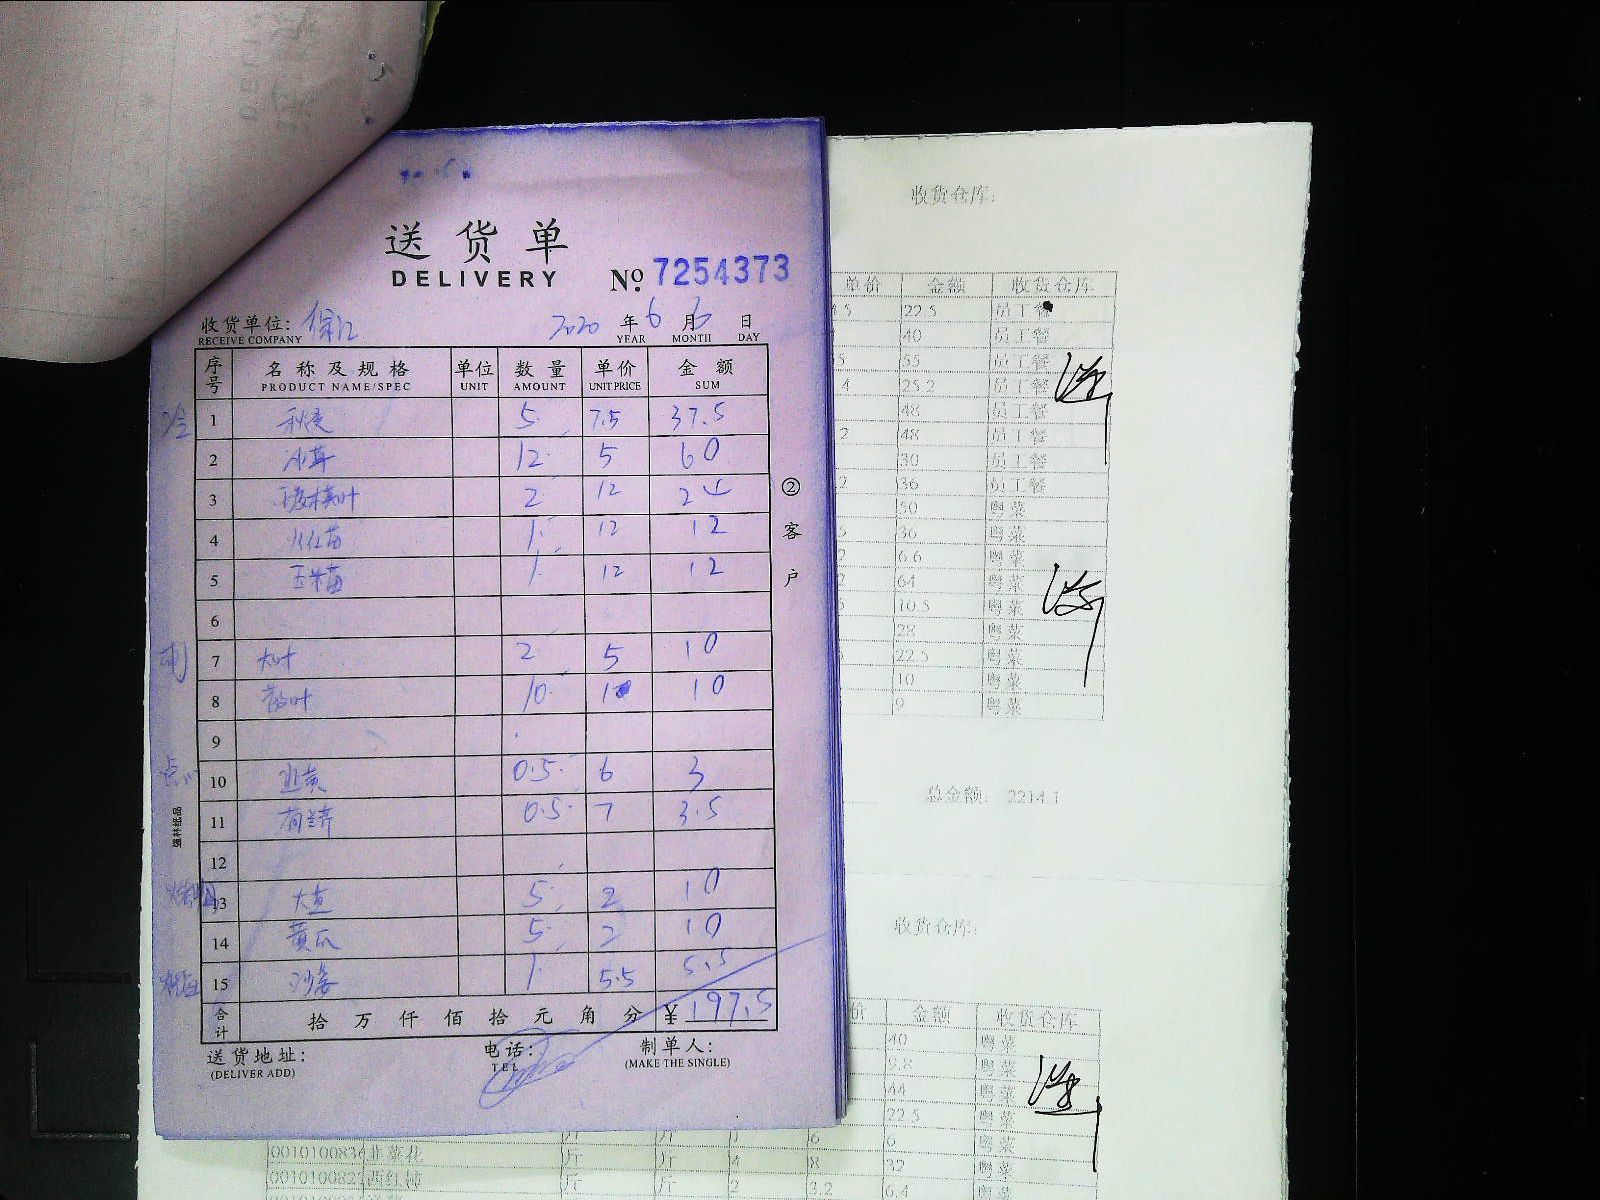 送货单
DELIVERY № 7254373
收货单位: 2020 年 6 月 6 日
RECEIVE COMPANY YEAR MONTH DAY
序号 名称及规格 单位 数量 单价 金额
PRODUCT NAME/SPEC UNIT AMOUNT UNIT PRICE SUM
1 秋葵 5 7.5 37.5
2 12 5 60
3 2 12 24
4 1 12 12
5 玉米苗 1 12 12
6
7 大叶 2 5 10
8 10 1 10
9
10 韭黄 0.5 6 3
11 0.5 7 3.5
12
13 5 2 10
14 黄瓜 5 2 10
15 沙姜 1 5.5 5.5
合计 拾 万 仟 佰 拾 元 角 分 ¥ 197.5
送货地址: 电话: 制单人:
(DELIVER ADD) TEL (MAKE THE SINGLE)
② 客户
强林纸品
收货仓库:
单价 金额 收货仓库
22.5 员工餐
40 员工餐
55 员工餐
4 25.2 员工餐
48 员工餐
2 48 员工餐
30 员工餐
2 36 员工餐
50 粤菜
36 粤菜
2 6.6 粤菜
2 64 粤菜
10.5 粤菜
28 粤菜
22.5 粤菜
10 粤菜
9 粤菜
总金额: 2214.1
收货仓库:
价 金额 收货仓库
40 粤菜
9.8 粤菜
44 粤菜
22.5 粤菜
斤 斤 1 6 6 粤菜
韭菜花 斤 斤 4 8 32 粤菜
西红柿 斤 斤 2 3.2 6.4 粤菜